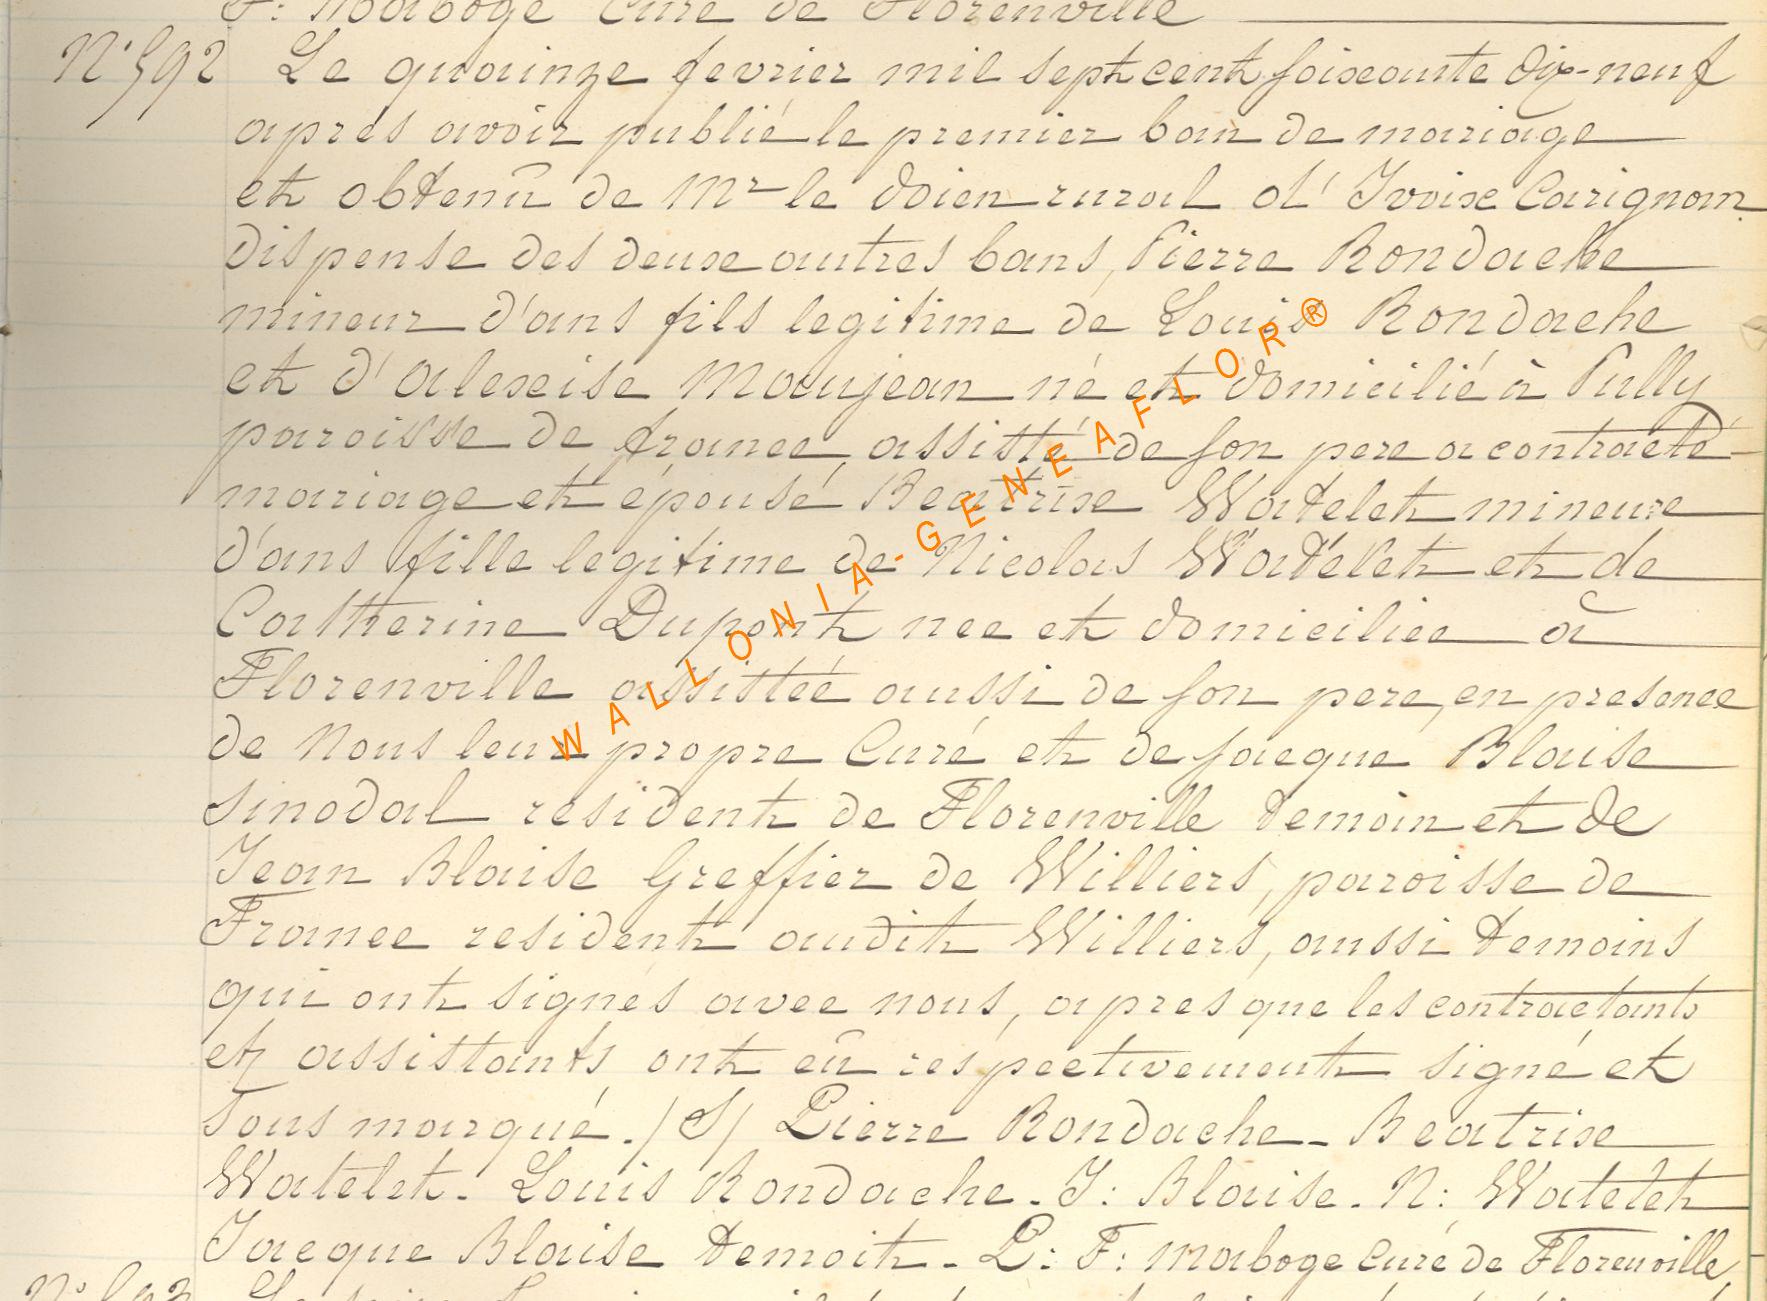 F: Maboge Curé de Florenville
N° 592 Le quainze fevrier mil sept cent soixante dix-neuf
aprés avoir publié le premier ban de mariage
et obtenû de Mr le doien rural d'Ivoix Carignan
dispense des deux autres bans, Pierre Rondache
mineur d'ans fils legitime de Louis Rondache
et d'alexise Maujean né et domicilié à Pully
paroisse de france, assisté de son pere a contracté
mariage et épousé Beatrise Watelet mineure
d'ans fille legitime de Nicolas Watelet et de
Catherine Dupont nee et domiciliee à
Florenville assistéé aussi de son pere, en presence
de Nous leur propre Curé et de jacque Blaise
sinodal resident de Florenville temoin et de
Jean Blaise Greffier de Williers, paroisse de
France resident audit Williers, aussi temoins
qui ont signés avec nous, apres que les contractants
et assistants ont eû respectivement signé et
sous marqué. /S/ Pierre Rondache - Beatrise
Watelet - Louis Rondache - J: Blaise - N: Watelet
Jacque Blaise temoit - P: F: Maboge Curé de Florenville,
N° 593
WALLONIA-GENEAFLOR®